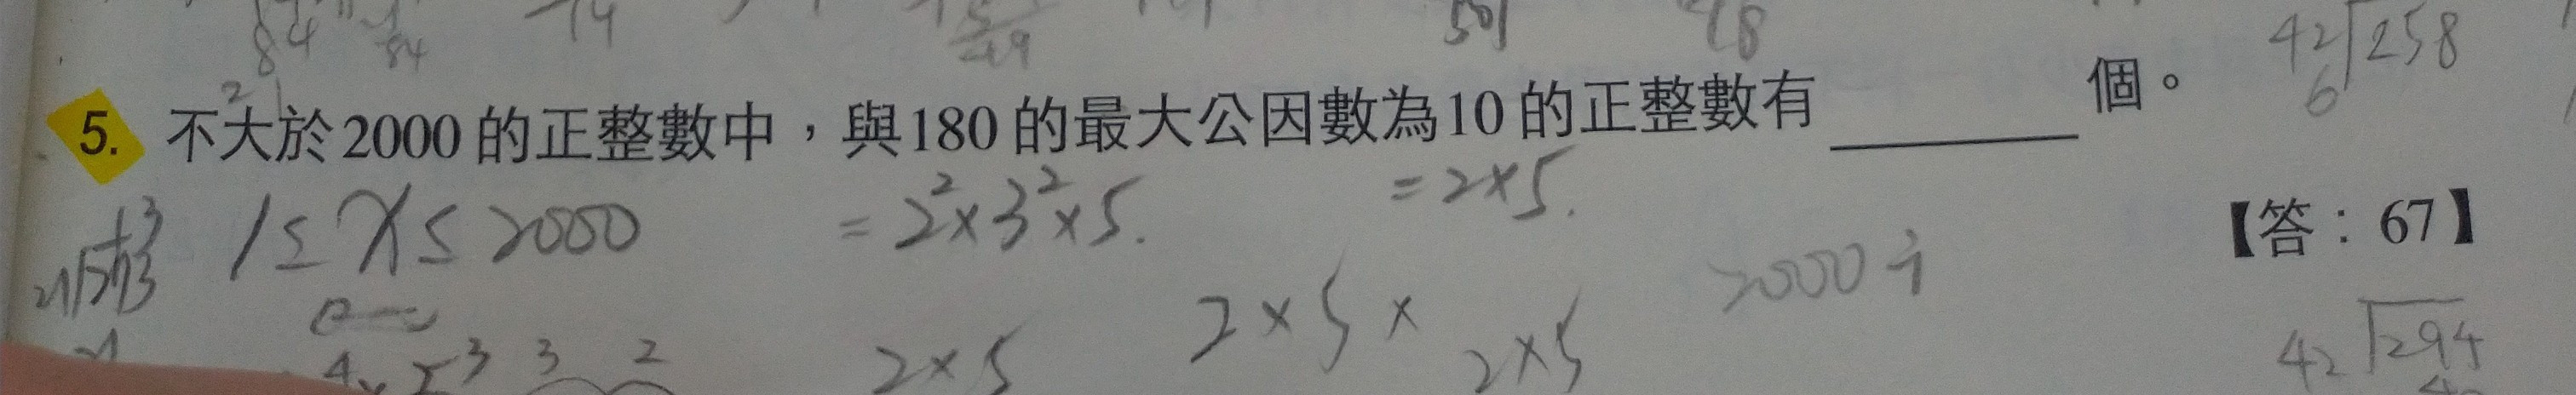 84
84
14
5
49
501
18
42 258
6
5. 不大於2000的正整數中，與180的最大公因數為10的正整數有 個。
1≤x≤2000
=2²×3²×5.
=2×5.
【答：67】
2000÷
2×5×
2×5
2×5
3 3 2
42 294